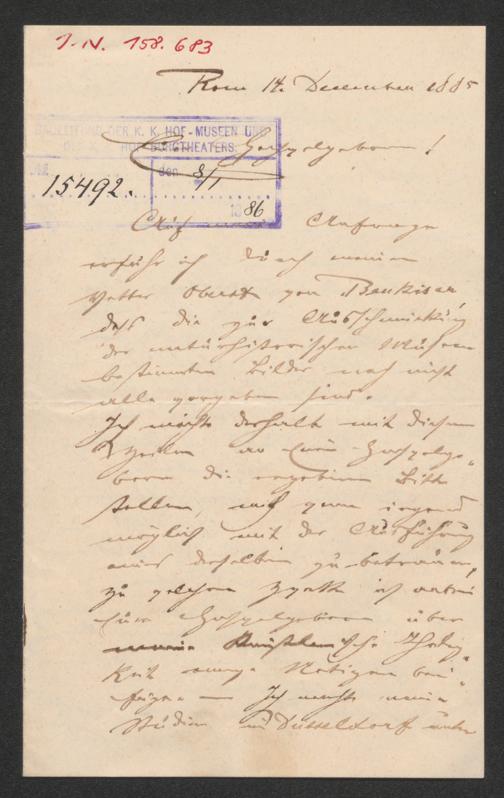 J.N. 158.683
Rom 14. December 1885
BAULEITUNG DER K. K. HOF-MUSEEN UND
HOFBURGTHEATERS.
Euer Hochwohlgeboren!
15492. den 8/1
1886
Auf meine Anfrage
erfuhr ich durch meinen
Vetter Oberst von
daß die zur Ausschmückung
des naturhistorischen Museum
bestimmten Bilder noch nicht
alle vergeben sind.
Ich möchte deshalb mit diesen
Zeilen an Euer Hochwohlge-
boren die ergebene Bitte
stellen, mich wenn irgend
möglich mit der Ausführung
eines derselben zu betrauen,
zu welchem Zweck ich anbei
Euer Hochwohlgeboren über
meine künstlerische Thätig-
keit einige Notizen bei-
füge — Ich machte meine
Studien in Düsseldorf unter